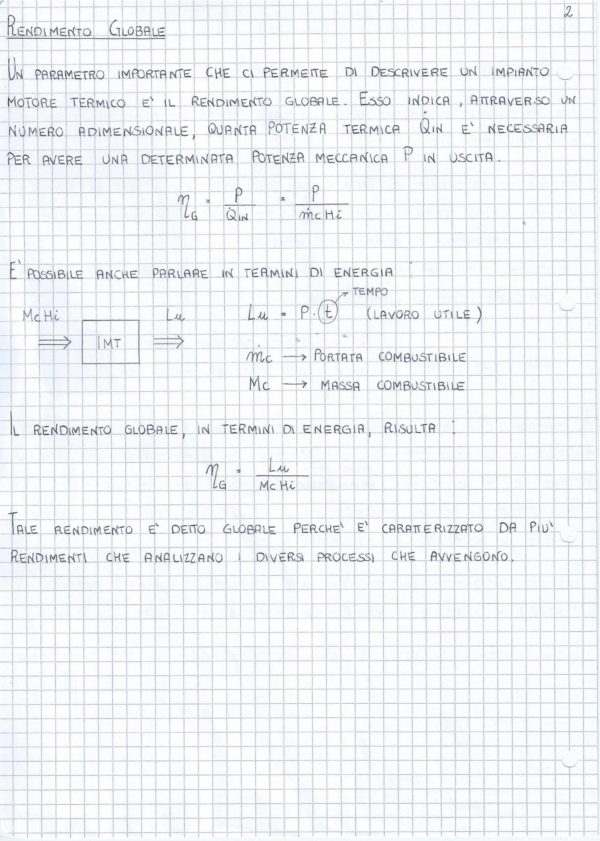 2
RENDIMENTO GLOBALE
UN PARAMETRO IMPORTANTE CHE CI PERMETTE DI DESCRIVERE UN IMPIANTO
MOTORE TERMICO E' IL RENDIMENTO GLOBALE. ESSO INDICA, ATTRAVERSO UN
NUMERO ADIMENSIONALE, QUANTA POTENZA TERMICA Q̇IN E' NECESSARIA
PER AVERE UNA DETERMINATA POTENZA MECCANICA P IN USCITA.
ηG = P / Q̇IN = P / ṁc Hi
E' POSSIBILE ANCHE PARLARE IN TERMINI DI ENERGIA :
TEMPO
Mc Hi ⇒ IMT ⇒ Lu
Lu = P · t (LAVORO UTILE)
ṁc → PORTATA COMBUSTIBILE
Mc → MASSA COMBUSTIBILE
IL RENDIMENTO GLOBALE, IN TERMINI DI ENERGIA, RISULTA :
ηG = Lu / Mc Hi
TALE RENDIMENTO E' DETTO GLOBALE PERCHE' E' CARATTERIZZATO DA PIU'
RENDIMENTI CHE ANALIZZANO I DIVERSI PROCESSI CHE AVVENGONO.